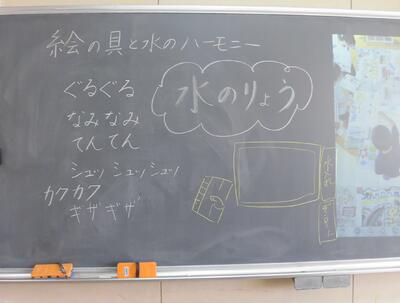 絵の具と水のハーモニー
水のりょう
ぐるぐる
なみなみ
てんてん
シュッ シュッ シュッ
カクカク
ギザギザ
水入れ